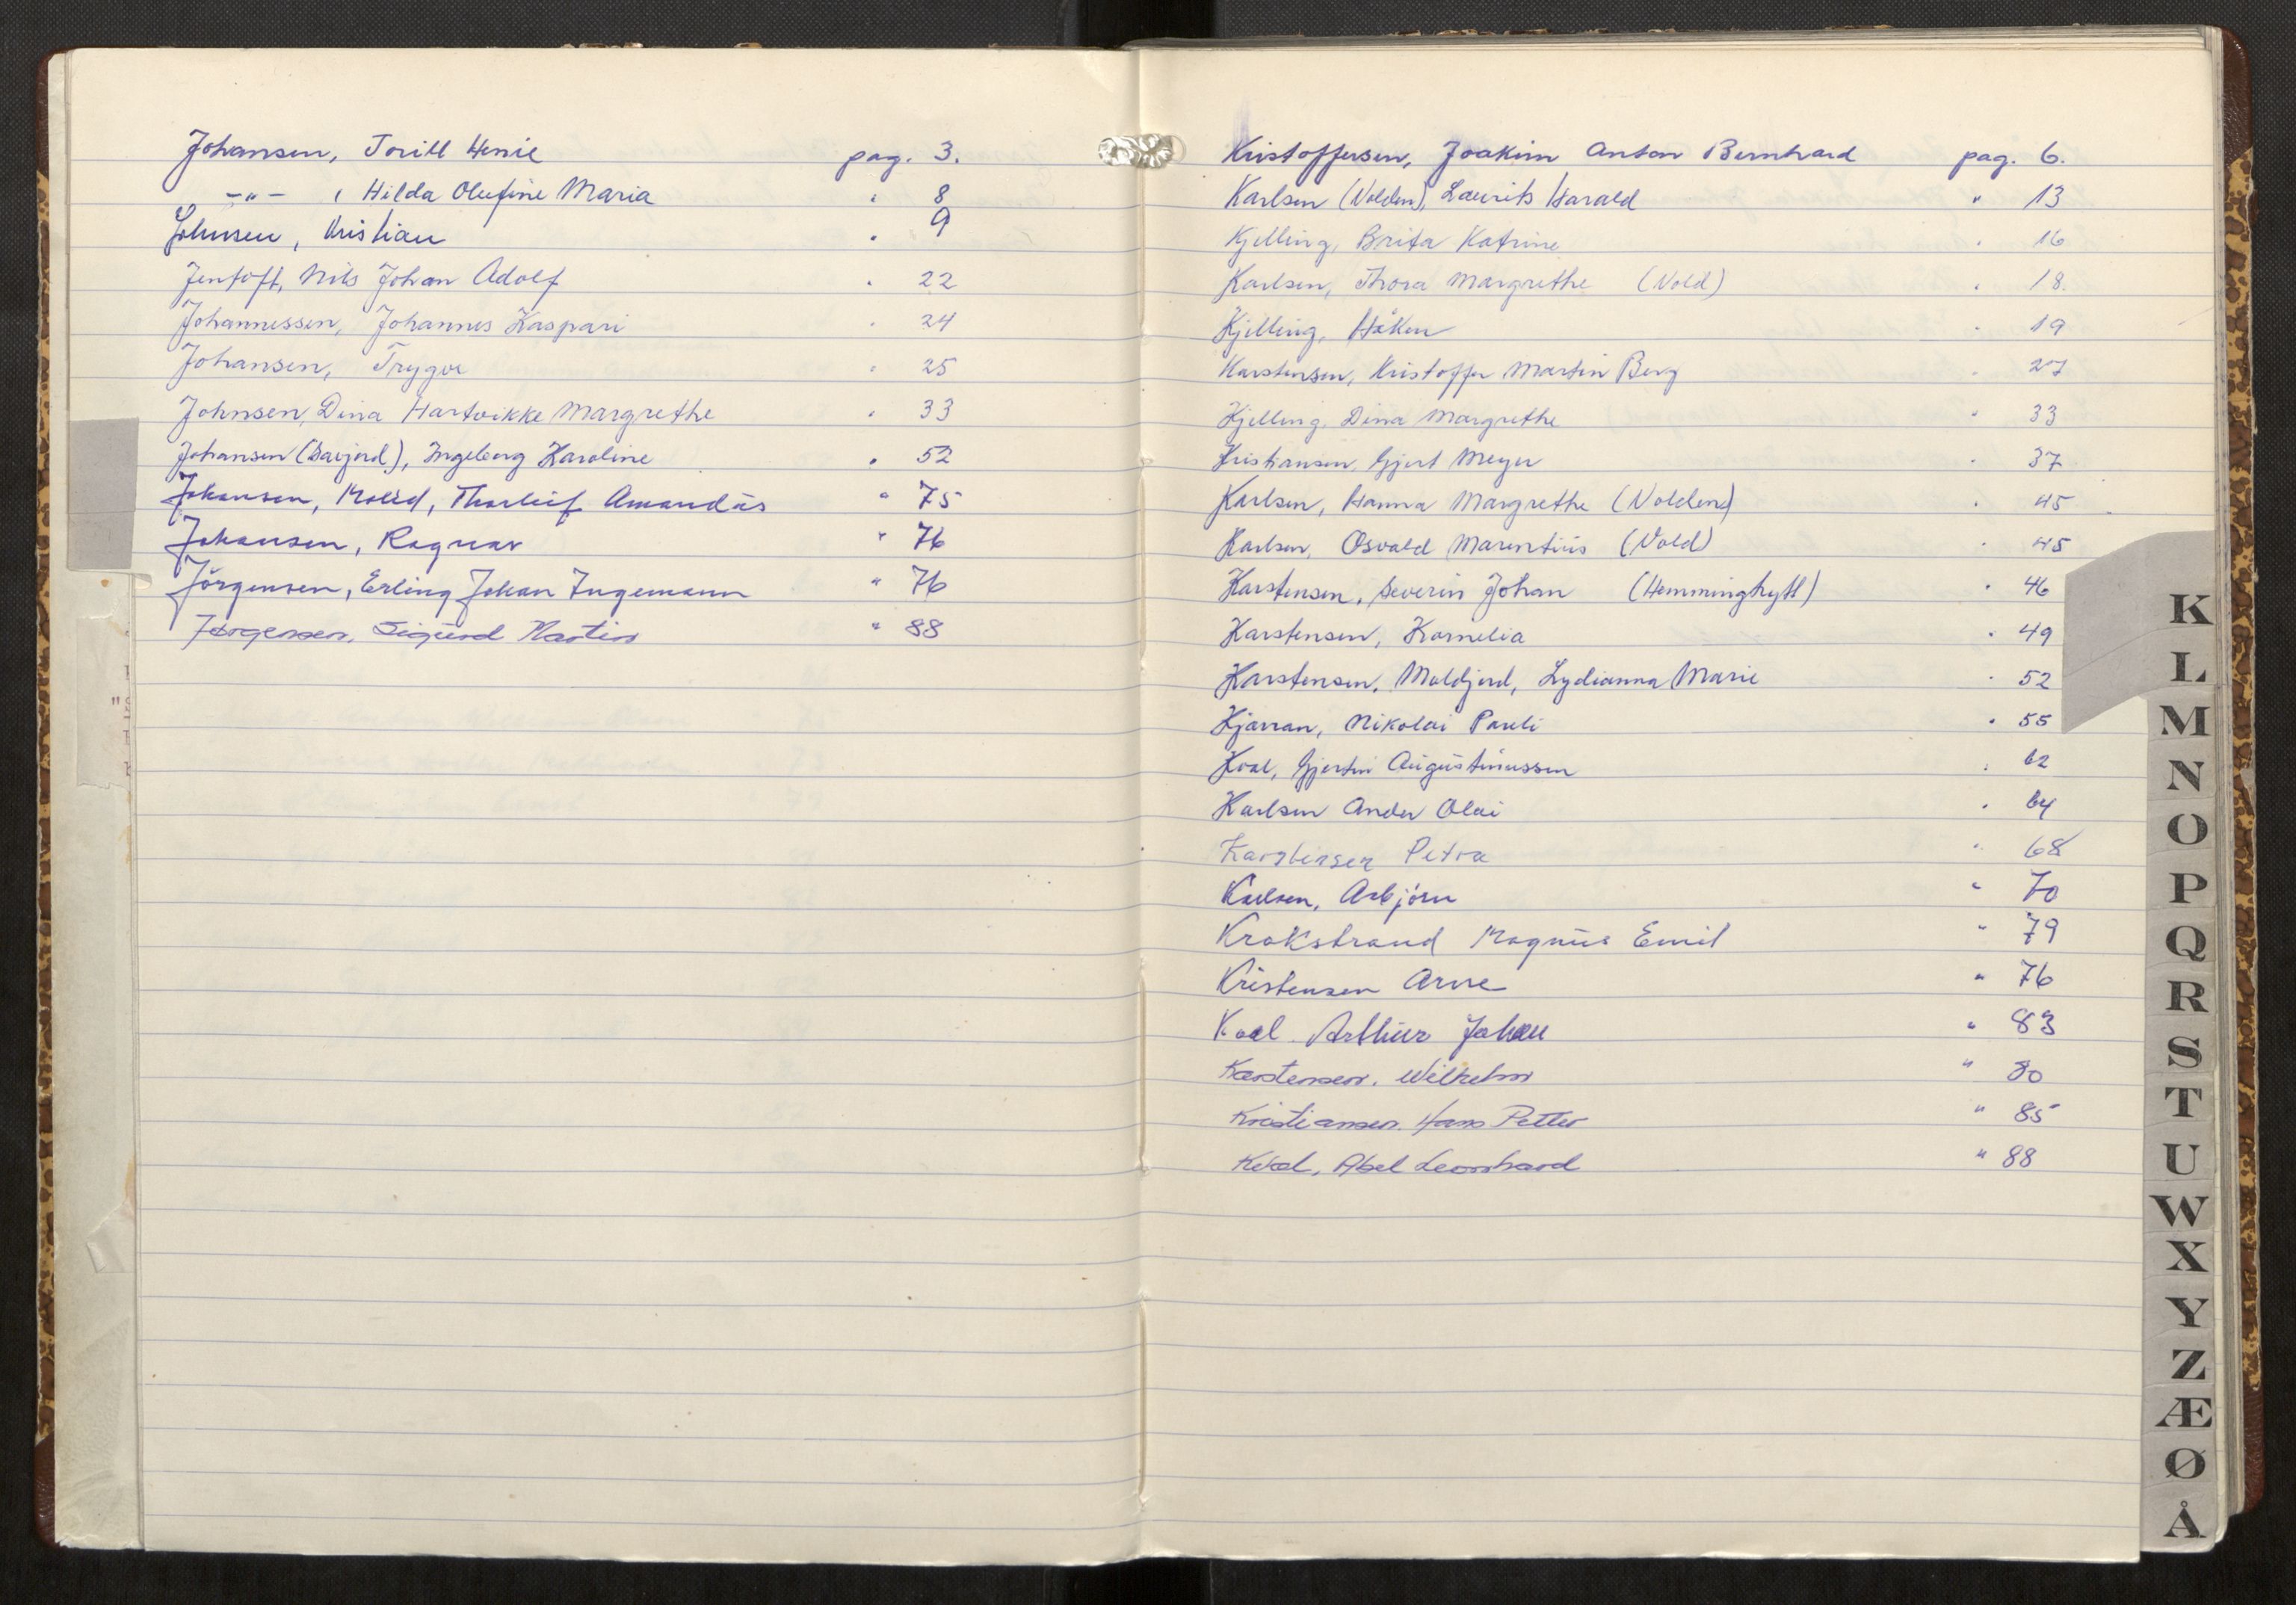 Johansen, Torill Henie pag. 3.
-"- , Hilda Olufine Maria " 8
Johnsen, Kristian " 9
Jentoft, Nils Johan Adolf " 22
Johannessen, Johannes Kaspari " 24
Johansen, Trygve " 25
Johnsen, Dina Hartvikke Margrethe " 33
Johansen (Savjord), Ingeborg Karoline " 52
Johansen, Thorleif Amandus " 75
Johansen, Ragnar " 76
Jörgensen, Erling Johan Ingemann " 76
Jørgensen, Sigurd Martin " 88
Kristoffersen, Joakim Anton Bernhard pag. 6.
Karlsen (Volden), Laurits Harald " 13
Kjelling, Brita Katrine " 16
Karlsen, Thora Margrethe (Vold) " 18.
Kjelling, Håkon " 19
Karstensen, Kristoffer Martin Berg " 27
Kjelling, Dina Margrethe " 33
Kristiansen, Gjert Meyer " 37
Karlsen, Hanna Margrethe (Volden) " 45
Karlsen, Osvald Marentius (Vold) " 45
Karstensen, Severin Johan (Hemminghytt) " 46
Karstensen, Kornelia " 49
Karstensen, Moldjord, Lydianna Marie " 52
Kjærran, Nikolai Pauli " 55
Koal, Gjertin Augustinussen " 62
Karlsen Ander Olai " 64
Karstensen Petra " 68
Karlsen, Asbjörn " 70
Krokstrand Magnus Emil " 79
Kristensen Arne " 76
Koal Arthur Johan " 83
Karstensen, Wilhelm " 80
Kristiansen, Hans Petter " 85
Abel Leonhard " 88
K
L
M
N
O
P
Q
R
S
T
U
W
X
Y
Z
Æ
Ø
Å